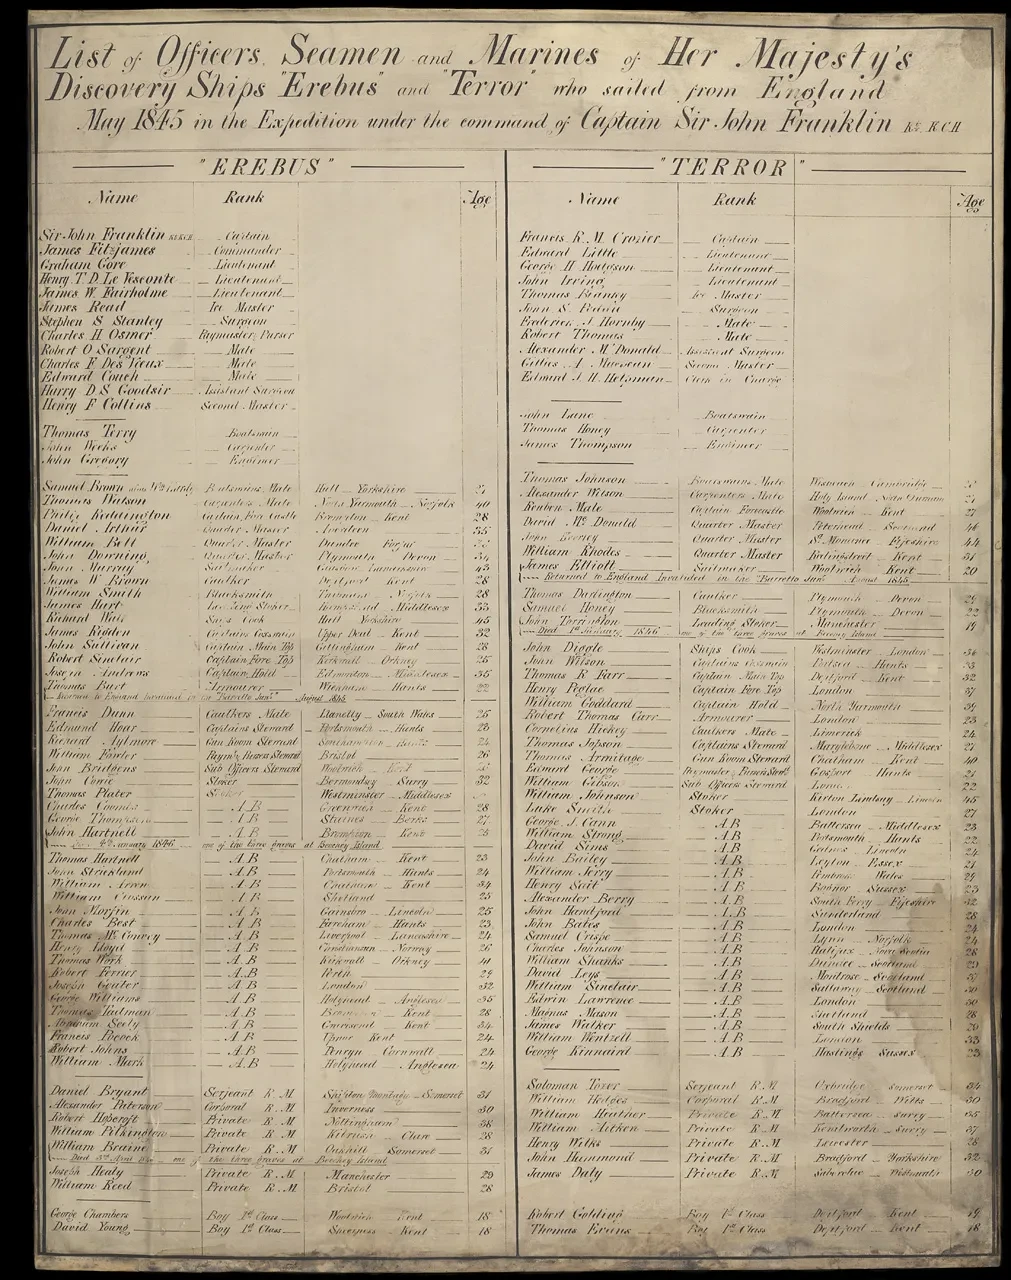 List of Officers, Seamen and Marines of Her Majesty's
Discovery Ships "Erebus" and "Terror" who sailed from England
May 1845 in the Expedition under the command of Captain Sir John Franklin Kt. K.C.H
"EREBUS"
Name Rank Age
Sir John Franklin Captain
James Fitzjames Commander
Graham Gore Lieutenant
Henry T. D. Le Vesconte Lieutenant
James W. Fairholme Lieutenant
James Read Ice Master
Stephen S Stanley Surgeon
Charles H Osmer Paymaster, Purser
Robert O Sargent Mate
Charles F Des Vœux Mate
Edward Couch Mate
Harry D S Goodsir Assistant Surgeon
Henry F Collins Second Master
Thomas Terry Boatswain
John Weeks Carpenter
John Gregory Engineer
Samuel Brown Boatswains Mate Hull Yorkshire
Thomas Watson Carpenters Mate Yarmouth Norfolk 40
Philip Reddington Captain Fore Castle Brompton Kent 28
Daniel Arthur Quarter Master Aberdeen 35
William Bell Quarter Master Dundee Forfar
John Downing Quarter Master Plymouth Devon 34
John Murray Sailmaker Glasgow 43
James W Brown Caulker Deptford Kent 28
William Smith Blacksmith Norfolk 28
James Hart Leading Stoker Hampstead Middlesex 33
Richard Wall Ships Cook Hull Yorkshire 45
James Rigden Captains Coxswain Upper Deal Kent 32
John Sullivan Captain Main Top Gillingham Kent 28
Robert Sinclair Captain Fore Top Kirkwall Orkney 25
Joseph Andrews Captain Hold Edmonton Middlesex 35
Thomas Burt Armourer Wickham Hants 22
Returned to England Invalided in the "Barretto Junr" August 1845
Francis Dunn Caulkers Mate Llanelly South Wales 25
Edmund Hoar Captains Steward Portsmouth Hants 23
Richard Aylmore Gun Room Steward Southampton Hants 24
William Fowler Paymr. Pursers Steward Bristol 26
John Bridgens Sub Officers Steward Woolwich Kent
John Cowie Stoker Bermondsey Surry 32
Thomas Plater Stoker Westminster Middlesex
Charles Coombs A.B Greenwich Kent 28
George Thompson A.B Staines Berks 27
John Hartnell A.B Brompton Kent 25
Died 4th January 1846 one of the three graves at Beechey Island
Thomas Hartnell A.B Chatham Kent 23
John Strickland A.B Portsmouth Hants 24
William Orren A.B Chatham Kent 34
William Cossan A.B Shetland 25
John Morfin A.B Gainsbro Lincoln 25
Charles Best A.B Fareham Hants 23
Thomas Mc Convey A.B Liverpool Lancashire 24
Henry Lloyd A.B Christiansun Norway 26
Thomas Work A.B Kirkwall Orkney 41
Robert Ferrier A.B Perth 29
Joseph Geater A.B London 32
George Williams A.B Holyhead Anglesea 35
Thomas Tadman A.B Kent 28
Abraham Seely A.B Gravesend Kent 34
Francis Pocock A.B Upnor Kent 24
Robert Johns A.B Penryn Cornwall 24
William Mark A.B Holyhead Anglesea 24
Daniel Bryant Serjeant R.M Somerset 31
Alexander Paterson Corporal R.M Inverness 30
Robert Hopcroft Private R.M Nottingham 38
William Pilkington Private R.M Kilrush Clare 28
William Braine Private R.M Oakhill Somerset 31
Died 3rd April 1846 one of the three graves at Beechey Island
Joseph Healy Private R.M Manchester 29
William Reed Private R.M Bristol 28
George Chambers Boy 1st Class Woolwich Kent 18
David Young Boy 1st Class Sheerness Kent 18
"TERROR"
Name Rank Age
Francis R. M. Crozier Captain
Edward Little Lieutenant
George H Hodgson Lieutenant
John Irving Lieutenant
Thomas Blanky Ice Master
John S. Peddie Surgeon
Frederick J Hornby Mate
Robert Thomas Mate
Alexander McDonald Assistant Surgeon
Gillies A Macbean Second Master
Edward J. H. Helpman Clerk in Charge
John Lane Boatswain
Thomas Honey Carpenter
James Thompson Engineer
Thomas Johnson Boatswains Mate Wisbeach Cambridge
Alexander Wilson Carpenters Mate Holy Island 27
Reuben Male Captain Forecastle Woolwich Kent 27
David Mc Donald Quarter Master Peterhead Scotland 46
John Kenley Quarter Master St. Monance Fifeshire 44
William Rhodes Quarter Master Kent 31
James Elliott Sailmaker Woolwich Kent 20
Returned to England Invalided in the "Barretto Junr" August 1845
Thomas Darlington Caulker Plymouth Devon 29
Samuel Honey Blacksmith Plymouth Devon 22
John Torrington Leading Stoker Manchester 19
Died 1st January 1846 one of the three graves at Beechey Island
John Diggle Ships Cook Westminster London 34
John Wilson Captains Coxswain Portsea Hants 33
Thomas R Farr Captain Main Top Deptford Kent 32
Henry Peglar Captain Fore Top London 37
William Goddard Captain Hold North Yarmouth 39
Robert Thomas Carr Armourer London 23
Cornelius Hickey Caulkers Mate Limerick 24
Thomas Jopson Captains Steward Marylebone Middlesex 27
Thomas Armitage Gun Room Steward Chatham Kent 40
Edward Genge Paymaster Pursers Steward Gosport Hants 21
William Gibson Sub Officers Steward London 22
William Johnson Stoker Kirton Lindsay Lincoln 45
Luke Smith Stoker London 27
George J. Cann A.B Battersea Middlesex 23
William Strong A.B Portsmouth Hants 22
David Sims A.B Lincoln 24
John Bailey A.B Leyton Essex 21
William Jerry A.B Pembroke Wales 29
Henry Sait A.B Bognor Sussex 23
Alexander Berry A.B South Ferry Fifeshire 32
John Handford A.B Sunderland 28
John Bates A.B London 24
Samuel Crispe A.B Lynn Norfolk 24
Charles Johnson A.B Halifax Nova Scotia 28
William Shanks A.B Dundee Scotland 29
David Leys A.B Montrose Scotland 37
William Sinclair A.B Galloway Scotland 30
Edwin Lawrence A.B London 30
Magnus Mason A.B Shetland 28
James Walker A.B South Shields 29
William Wentzell A.B London 33
George Kinnaird A.B Hastings Sussex 23
Soloman Tozer Serjeant R.M Somerset 34
William Hedges Corporal R.M Bradford Wilts 30
William Heather Private R.M Battersea Surry 35
William Aitken Private R.M Surry 37
Henry Wilks Private R.M Leicester 28
John Hammond Private R.M Bradford Yorkshire 32
James Daly Private R.M 30
Robert Golding Boy 1st Class Deptford Kent 19
Thomas Evans Boy 1st Class Deptford Kent 18